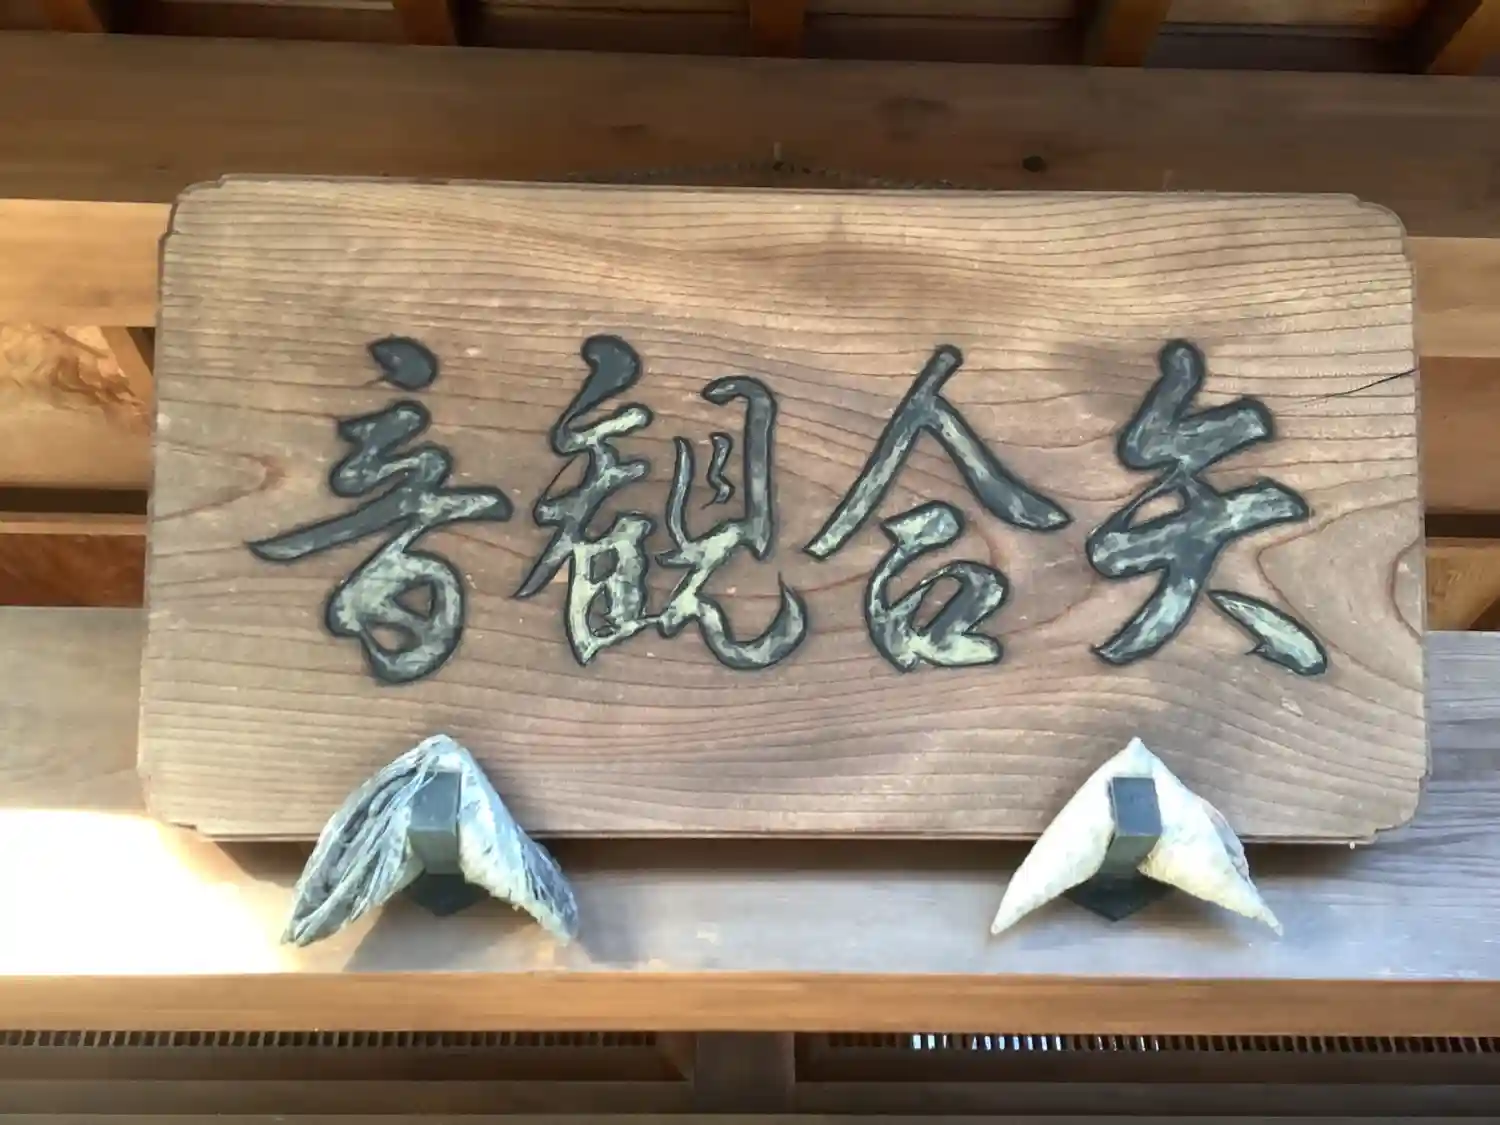 矢合観音